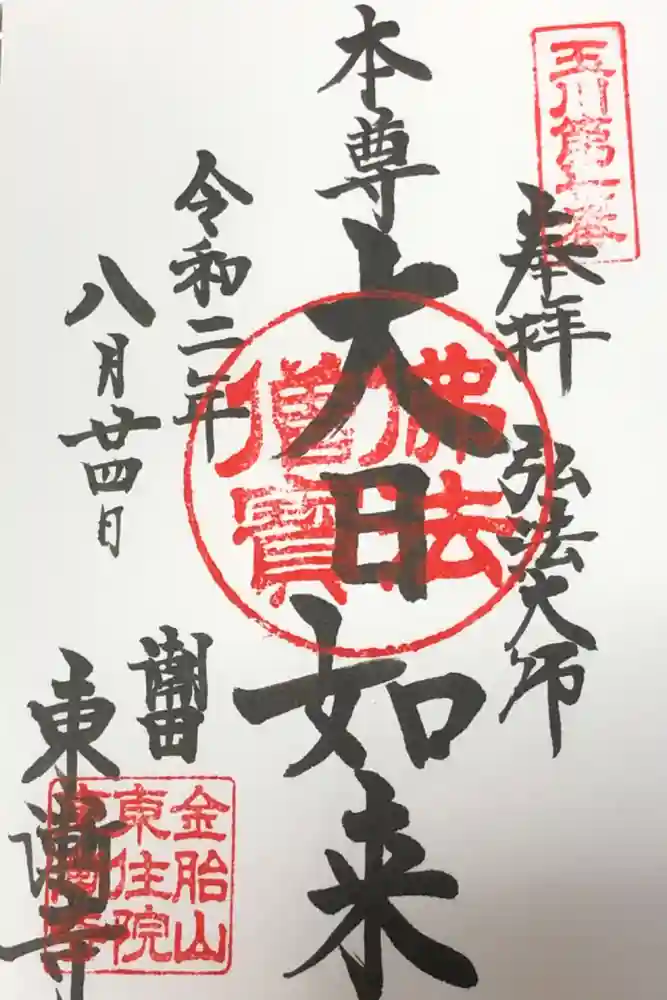 玉川第
奉拝 弘法大师
本尊 大日如来
佛法
僧寶
令和二年
八月廿四日
潮田
東漸寺
金胎山
東住院
東漸寺